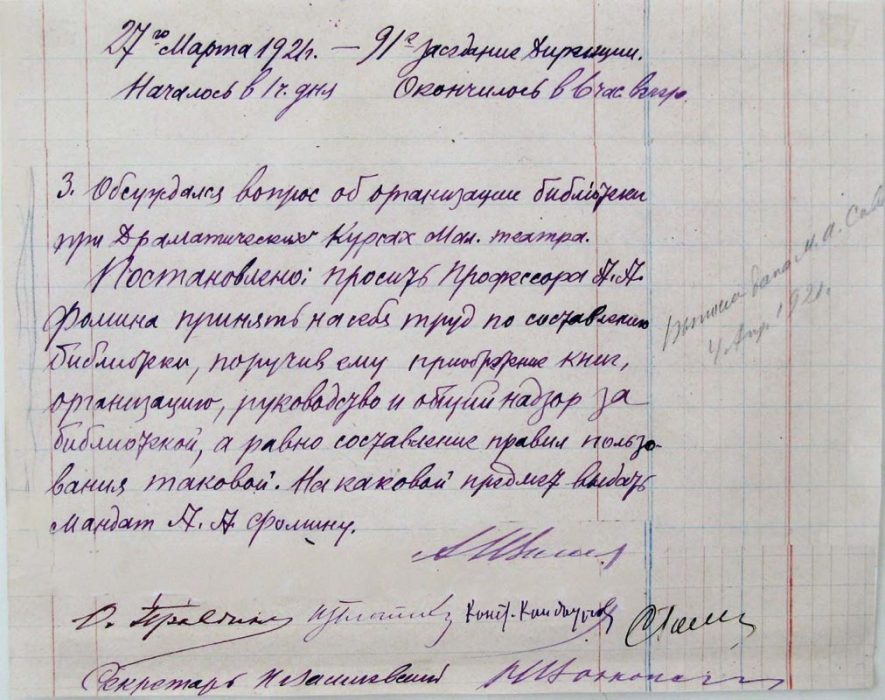 27го Марта 1921г. — 91е заседание Дирекции.
Началось в 1 ч. дня Окончилось в 6 час. вечер.
3. Обсуждался вопрос об организации библіотеки
при Драматических Курсах Мал. театра.
Постановлено: просить Профессора А. А.
Фомина принять на себя труд по составлению
библиотеки, поручив ему приобретение книг,
организацию, руководство и общий надзор за
библиотекой, а равно составление правил пользо-
вания таковой. На каковой предмет выдать
мандат А. А. Фомину.
О. Правдин
Секретарь
М. А.
4 Апр. 1921.